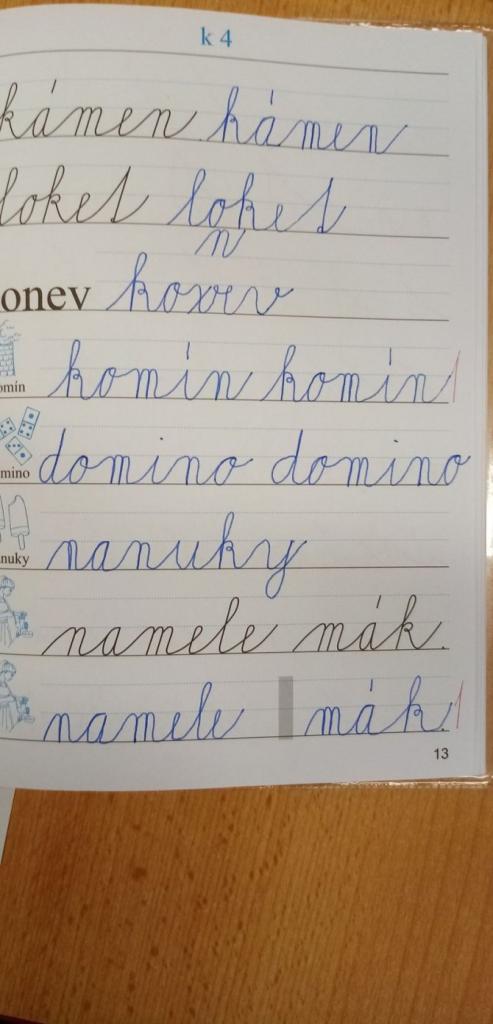 k 4
kámen kámen
loket loket
onev konev
omín komín komín
mino domino domino
nuky nanuky
namele mák.
namele mák.
13